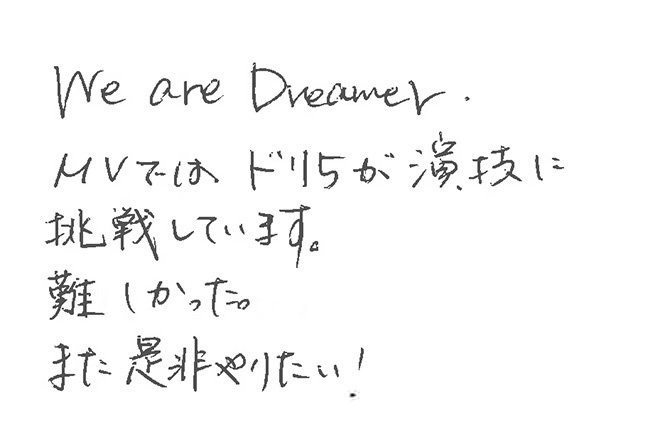 We are Dreamer.
MVではドリ5が演技に
挑戦しています。
難しかった。
また是非やりたい!